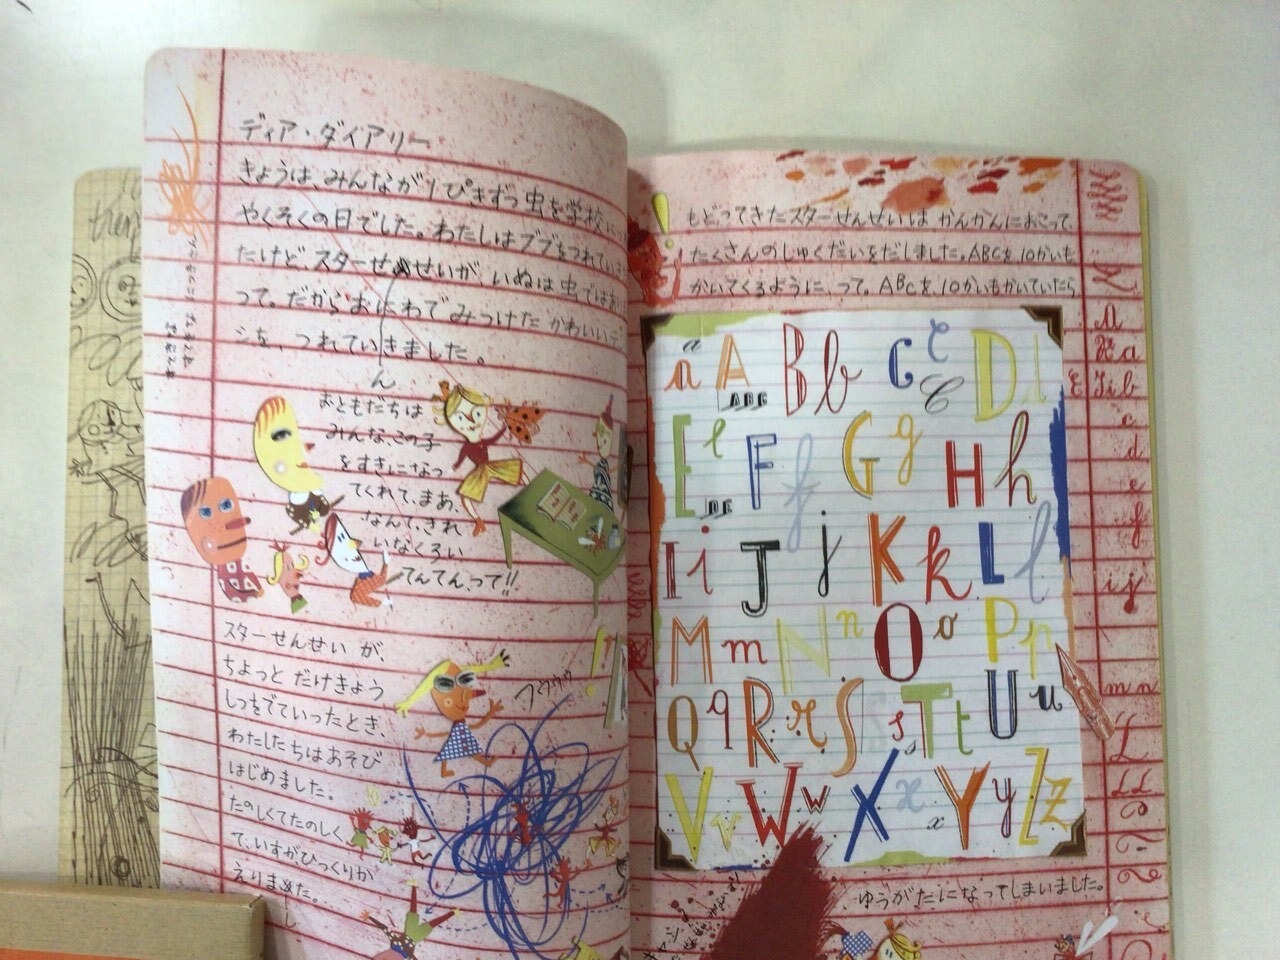 ディア・ダイアリー
きょうは、みんなが1ぴきずつ虫を学校に
やくそくの日でした。わたしはブブをつれていき
たけど、スターせんせいが、いぬは虫では
って。だからおにわでみつけたかわいい
シを、つれていきました。
ん
おともだちは
みんな、この子
をすきになっ
てくれて、まあ、
なんて、きれ
いなくろい
てんてん、って!!
スターせんせいが、
ちょっとだけきょう
しつをでていったとき、
わたしたちはあそび
はじめました。
たのしくてたのしく
て、いすがひっくりか
えりました。
もどってきたスターせんせいはかんかんにおこって
たくさんのしゅくだいをだしました。ABCを、10かいも
かいてくるように、って。ABCを、10かいもかいていたら
a A Bb Cc Dd
ABC
Ee Ff Gg Hh
DE
Ii Jj Kk Ll
Mm Nn Oo Pp
Qq Rr Ss Tt Uu
Vv Ww Xx Yy Zz
x
ゆうがたになってしまいました。
a
b
c
d
e
f
ij
mn